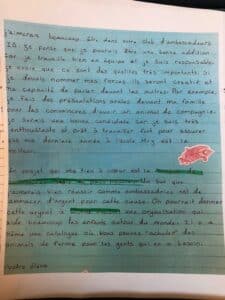 J'aimerais beaucoup être dans votre club d'ambassadeurs
Je pense que je pourrais être une bonne addition
car je travaille bien en équipe et je suis responsable.
Je crois que ce sont des qualités très importants. Si
je devais nommer mes forces, ils seront créatif et
ma capacité de parler devant les autres. Par exemple,
je fais des présentations orales devant ma famille
pour les convaincres d'avoir un animal de compagnie.
Je serais une bonne candidate car je suis très
enthousiaste et prêt à travailler fort pour assurer
que ma dernière année à l'école soit la
meilleur.
Un projet qui me tien à cœur est la
sur que
j'aimerais bien réussir comme ambassadrice est de
ramasser d'argent pour cette cause. On pourrait donner
cette argent à une organisation qui
aide beaucoup les enfants autour du monde. Il y a
même une catalogue où nous pouvons "acheter" des
animals de ferme pour les gents qui en a besoin.
Votre élève